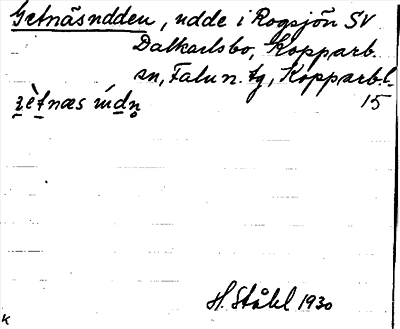 Getnäsudden, udde i Rogsjön SV
Dalkarlsbo, Kopparb.
sn, Falu n. tg, Kopparb. l.
15
H. Ståhl 1930
K